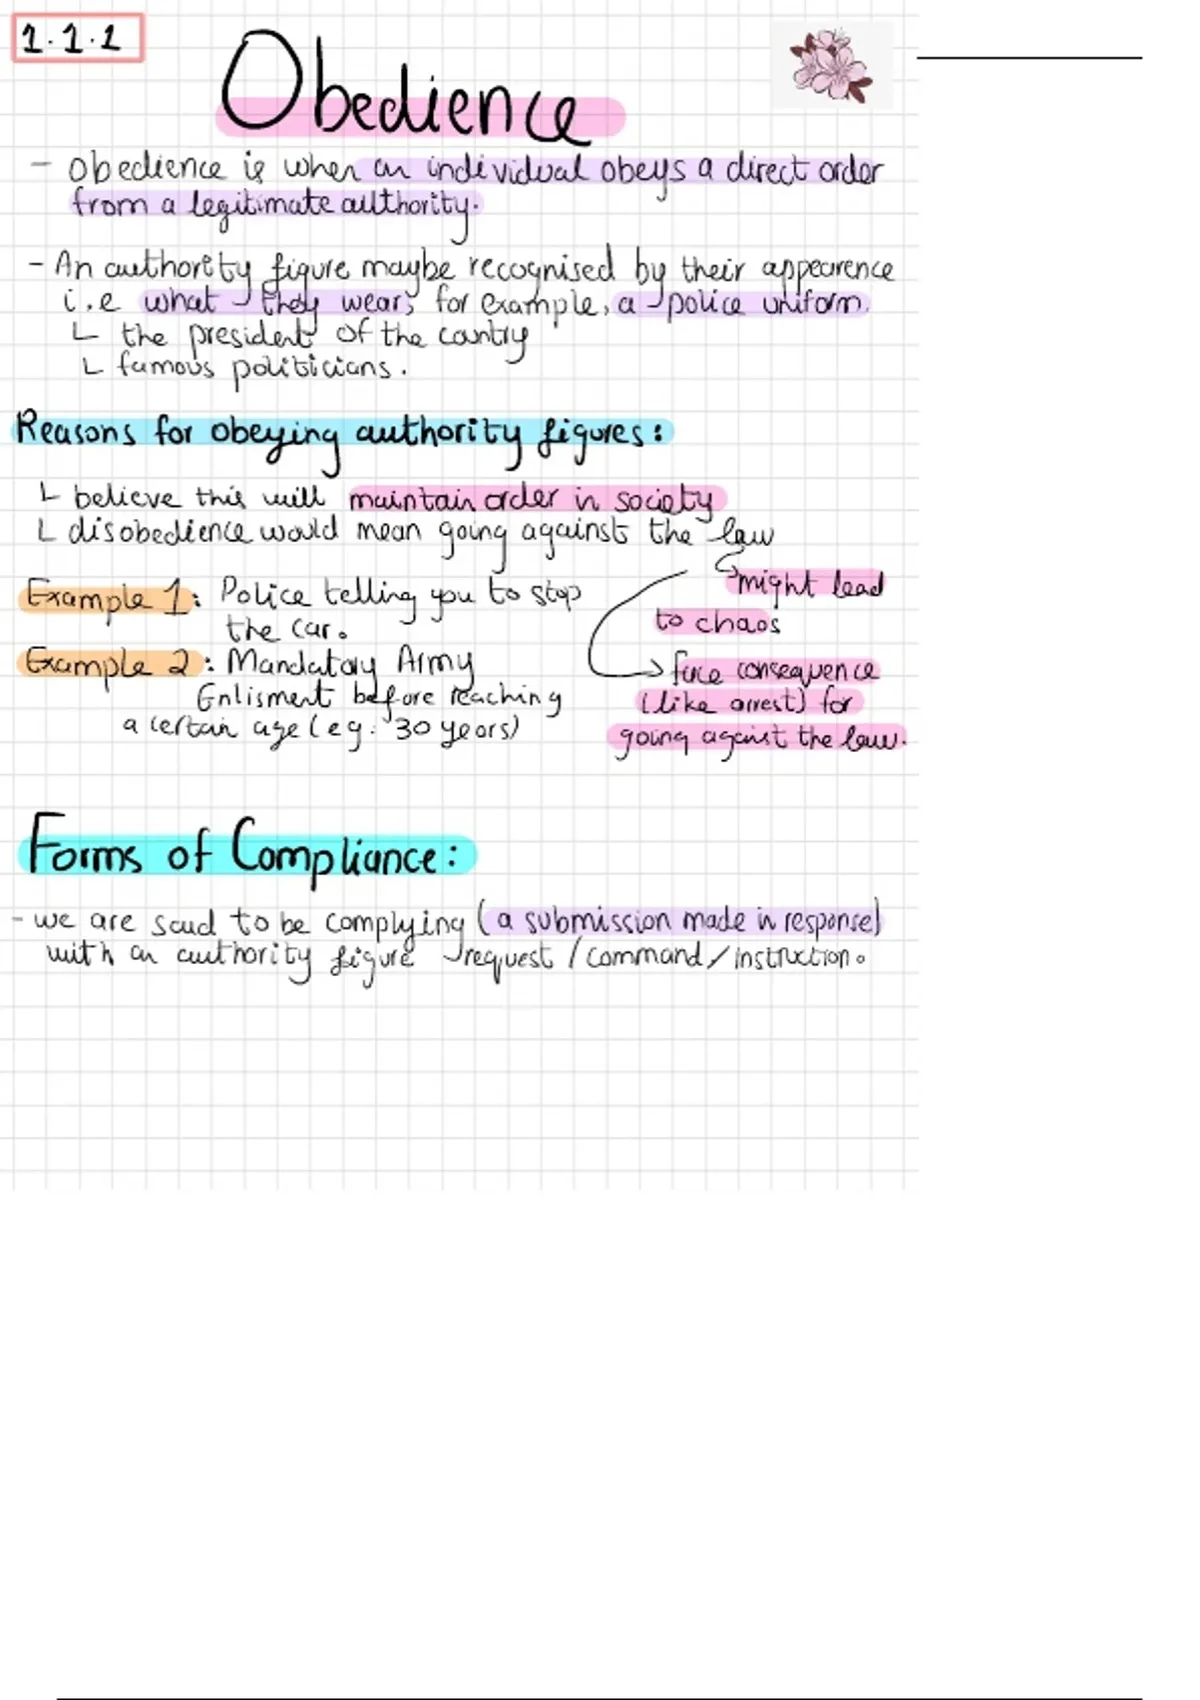 1.1.1
Obedience
- obedience is when an individual obeys a direct order
from a legitimate authority.
- An authority figure maybe recognised by their appearence
i.e what they wear, for example, a police uniform.
L the president of the country
L famous politicians.
Reasons for obeying authority figures:
L believe this will maintain order in society
L disobedience would mean going against the law
might lead
to chaos
Example 1: Police telling you to stop
the car.
Example 2: Mandatory Army
Enlisment before reaching
a certain age (eg: 30 years)
face consequence
(like arrest) for
going against the law.
Forms of Compliance:
- we are said to be complying (a submission made in response)
with an authority figure request / command / instruction.